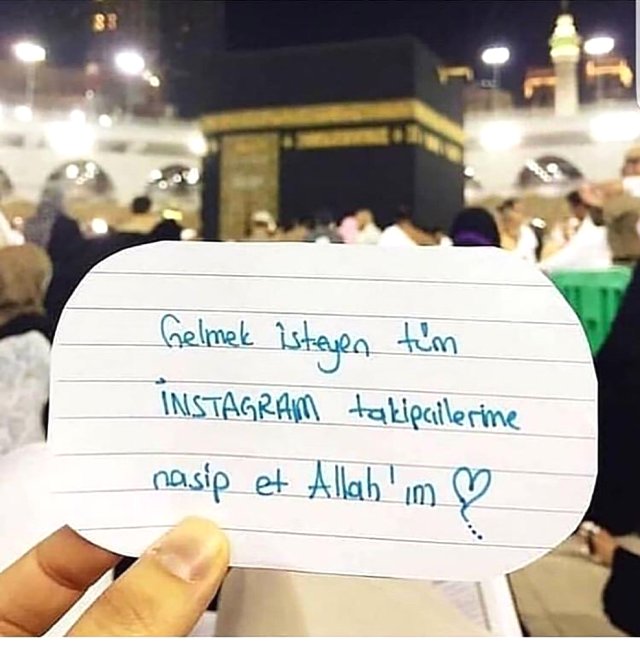 Gelmek isteyen tüm
İNSTAGRAM takipcilerime
nasip et Allah'ım